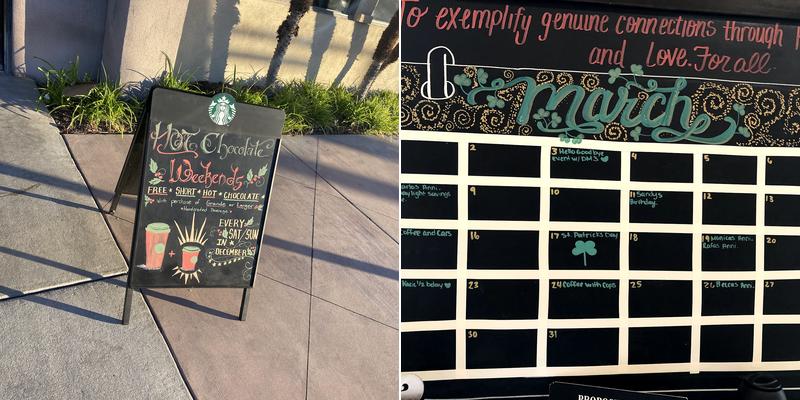 HOT Chocolate
Weekends
FREE * SHORT * HOT * CHOCOLATE
with purchase of Grande or Larger
Handcrafted Beverage
EVERY
SAT/SUN
IN
DECEMBER
+
To exemplify genuine connections through
and Love. For all
March
2
3 Hello Goodbye
event w/ DM3
4
5
6
Anni.
Daylight savings
9
10
11 Sandys
Birthday.
12
13
Coffee and Cars
16
17 St. Patricks Day
18
19 Monicas Anni.
Rafas Anni.
20
1/2 bday
23
24 Coffee with Cops
25
26 Belens Anni.
27
30
31